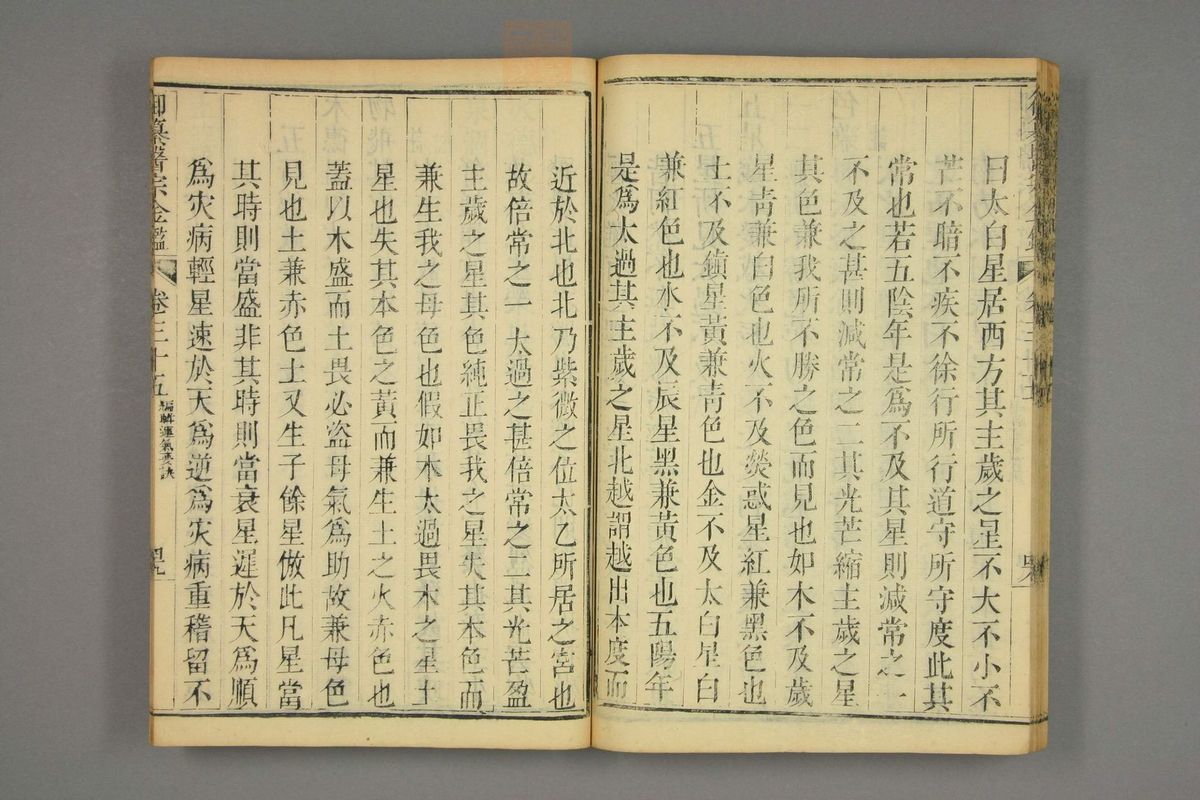 曰太白星居西方其主歲之星不大不小不
芒不暗不疾不徐行所行道守所守度此其
常也若五陰年是爲不及其星則減常之一
不及之甚則減常之二其光芒縮主歲之星
其色兼我所不勝之色而見也如木不及歲
星青兼白色也火不及熒惑星紅兼黑色也
土不及鎮星黃兼青色也金不及太白星白
兼紅色也水不及辰星黑兼黃色也五陽年
是爲太過其主歲之星北越謂越出本度而
近於北也北乃紫微之位太乙所居之宮也
故倍常之一太過之甚倍常之二其光芒盈
主歲之星其色純正畏我之星失其本色而
兼生我之母色也假如木太過畏木之星土
星也失其本色之黃而兼生土之火赤色也
蓋以木盛而土畏必盜母氣爲助故兼母色
見也土兼赤色土又生子餘星倣此凡星當
其時則當盛非其時則當衰星遲於天爲順
爲灾病輕星速於天爲逆爲灾病重稽留不
御纂醫宗金鑑
卷三十五
編輯運氣要訣